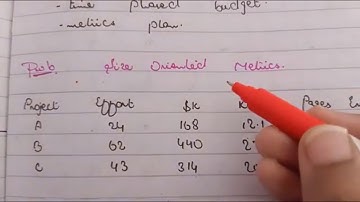 - time phased budget.
- metrics plan.
Prob size Oriented Metrics.
Project Effort $K Pages
A 24 168 12.1
B 62 440
C 43 314